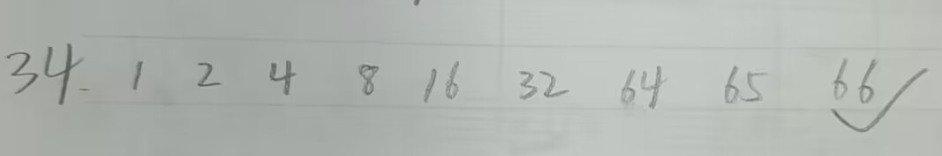 34. 1 2 4 8 16 32 64 65 66